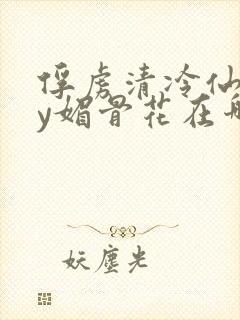 俘虏清冷仙
y媚骨花在船
妖尘光